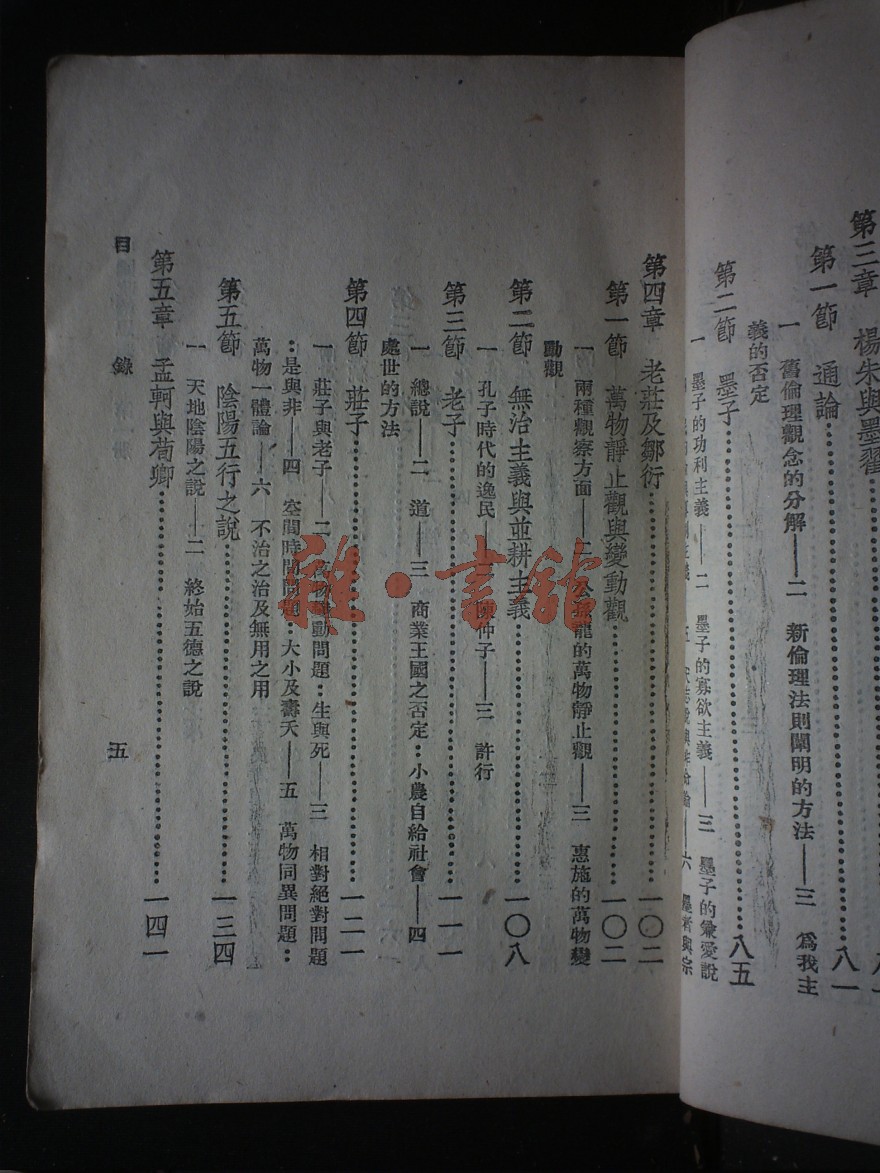 第三章　楊朱與墨翟
第一節　通論……八一
一　舊倫理觀念的分解——二　新倫理法則闡明的方法——三　為我主
義的否定
第二節　墨子……八五
一　墨子的功利主義——二　墨子的寡欲主義——三　墨子的兼愛說
六　墨者與宗
第四章　老莊及鄒衍……一〇二
第一節　萬物靜止觀與變動觀……一〇二
一　兩種觀察方面——二　公孫龍的萬物靜止觀——三　惠施的萬物變
動觀
第二節　無治主義與並耕主義……一〇八
一　孔子時代的逸民——二　陳仲子——三　許行
第三節　老子……一一一
一　總說——二　道——三　商業王國之否定：小農自給社會——四
處世的方法
第四節　莊子……一二一
一　莊子與老子——二　萬物變動問題：生與死——三　相對絕對問題
：是與非——四　空間時間問題：大小及壽夭——五　萬物同異問題：
萬物一體論——六　不治之治及無用之用
第五節　陰陽五行之說……一三四
一　天地陰陽之說——二　終始五德之說
第五章　孟軻與荀卿……一四一
目　錄　五
雜·書館